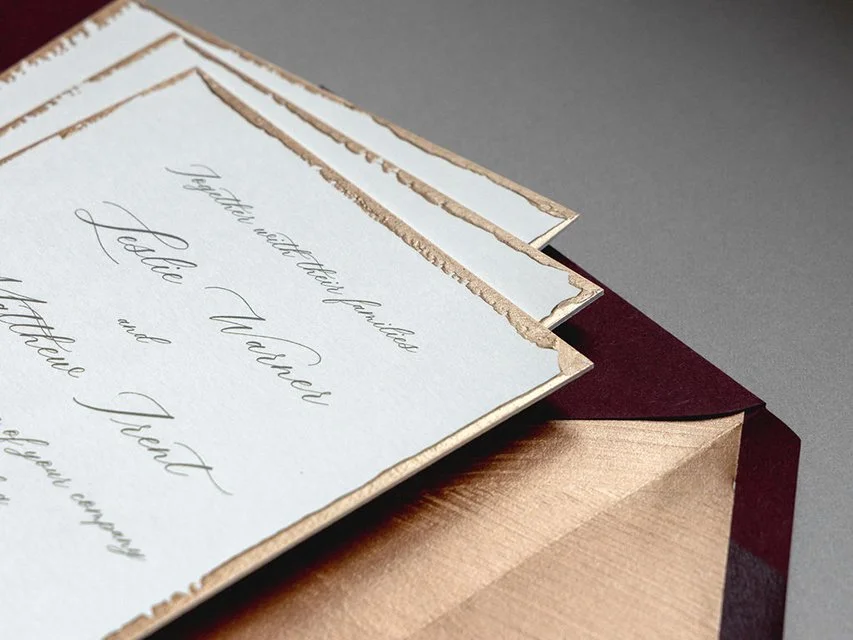 Together with their families
Leslie Warner
and
Matthew Trent
of your company